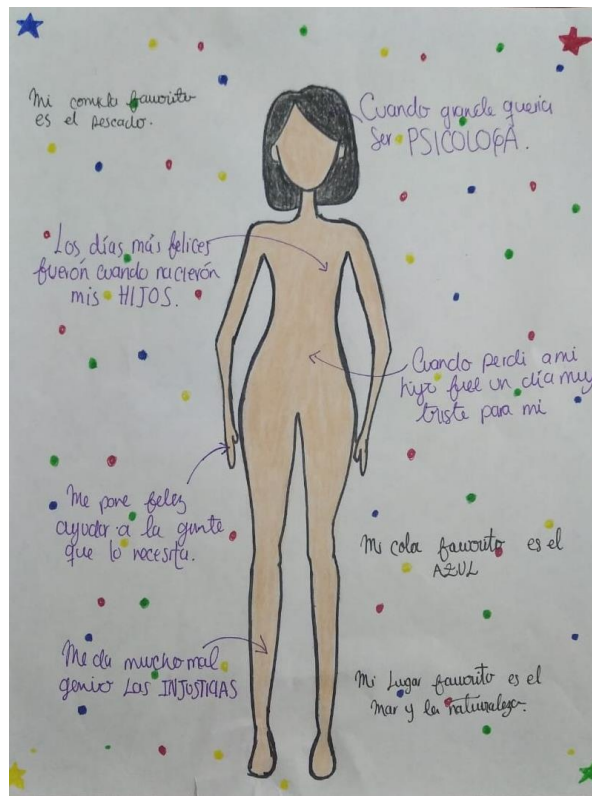 Mi comida favorito
es el pescado.
Cuando grande queria
Ser PSICOLOGA.
Los días más felices
fuerón cuando nacierón
mis HIJOS.
Cuando perdi a mi
hijo fuel un día muy
triste para mi
Me pone feliz
ayudar a la gente
que lo necesita.
Mi color favorito es el
AZUL
Me da mucho mal
genio LAS INJUSTICIAS
Mi Lugar favorito es el
Mar y la naturaleza.